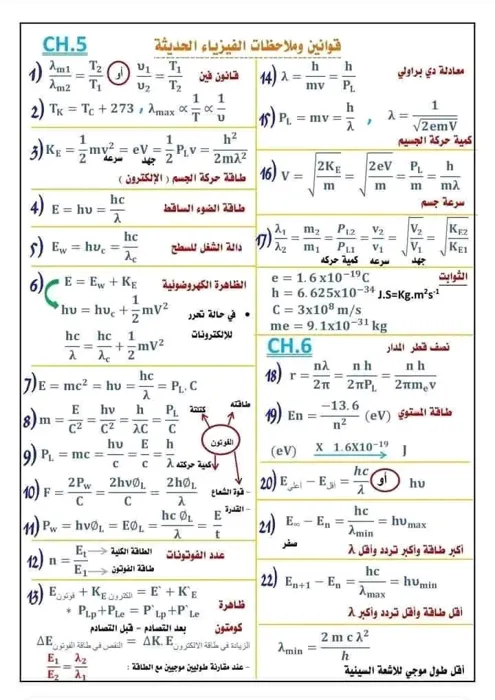 قوانين وملاحظات الفيزياء الحديثة
CH.5
1) λm1/λm2 = T2/T1 أو υ1/υ2 = T1/T2 قانون فين
2) TK = TC + 273 , λmax ∝ 1/T ∝ 1/υ
3) KE = 1/2 mv² = eV = 1/2 PLv = h²/2mλ²
سرعه جهد
طاقة حركة الجسم ( الإلكترون )
4) E = hυ = hc/λ طاقة الضوء الساقط
5) Ew = hυc = hc/λ دالة الشغل للسطح
6) E = Ew + KE الظاهرة الكهروضوئية
hυ = hυc + 1/2 mV² • في حالة تحرر
hc/λ = hc/λc + 1/2 mV² للإلكترونات
7) E = mc² = hυ = hc/λ = PL. C
8) m = E/C² = hν/C² = h/λC = PL/C كتلتة طاقته
الفوتون
9) PL = mc = hυ/c = E/c = h/λ كمية حركته
10) F = 2Pw/C = 2hνØL/C = 2hØL/λ - قوة الشعاع
- القدرة
11) Pw = hνØL = EØL = hc ØL/λ = E/t
12) n = Et/E1 الطاقة الكلية طاقة الفوتون عدد الفوتونات
13) Eفوتون + KE الكترون = E` + K`E ظاهرة
* PLp+PLe = P`Lp+P`Le كومتون
بعد التصادم - قبل التصادم
ΔE النقص في طاقة الفوتون = ΔK. E الزيادة في طاقة الالكترون
E1/E2 = λ2/λ1 - عند مقارنة طوليين موجيين مع الطاقة :
14) λ = h/mv = h/PL معادلة دي براولي
15) PL = mv = h/λ , λ = 1/√2emV
كمية حركة الجسيم
16) V = √2KE/m = √2eV/m = PL/m = h/mλ
سرعة جسم
17) λ1/λ2 = m2/m1 = PL2/PL1 = v2/v1 = √V2/V1 = √KE2/KE1
كمية حركه سرعه جهد
الثوابت
e = 1.6 x10⁻¹⁹C
h = 6.625x10⁻³⁴ J.S=Kg.m²s⁻¹
C = 3x10⁸ m/s
me = 9.1x10⁻³¹ kg
CH.6
نصف قطر المدار
18) r = nλ/2π = n h/2πPL = n h/2πmev
19) En = −13.6/n² (eV) طاقة المستوي
(eV) X 1.6X10⁻¹⁹ J
20) Eأعلي − Eأقل = hc/λ أو hυ
21) E∞ − En = hc/λmin = hυmax
صفر
أكبر طاقة وأكبر تردد وأقل λ
22) En+1 − En = hc/λmax = hυmin
أقل طاقة وأقل تردد وأكبر λ
λmin = 2 m c λ²/h
أقل طول موجي للاشعة السينية